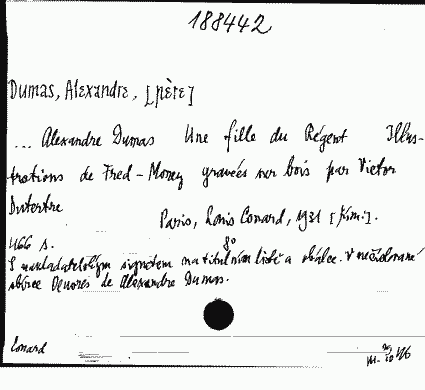 188442
Dumas, Alexandre, [père]
... Alexandre Dumas Une fille du Régent Illus-
trations de Fred-Money gravées sur bois par Victor
Dutertre
Paris, Louis Conard, 1931 [Kim.].
466 s. 8°
S nakladatelským signetem na titulním listě a obálce. V nečíslované
sbírce Oeuvres de Alexandre Dumas.
Conard